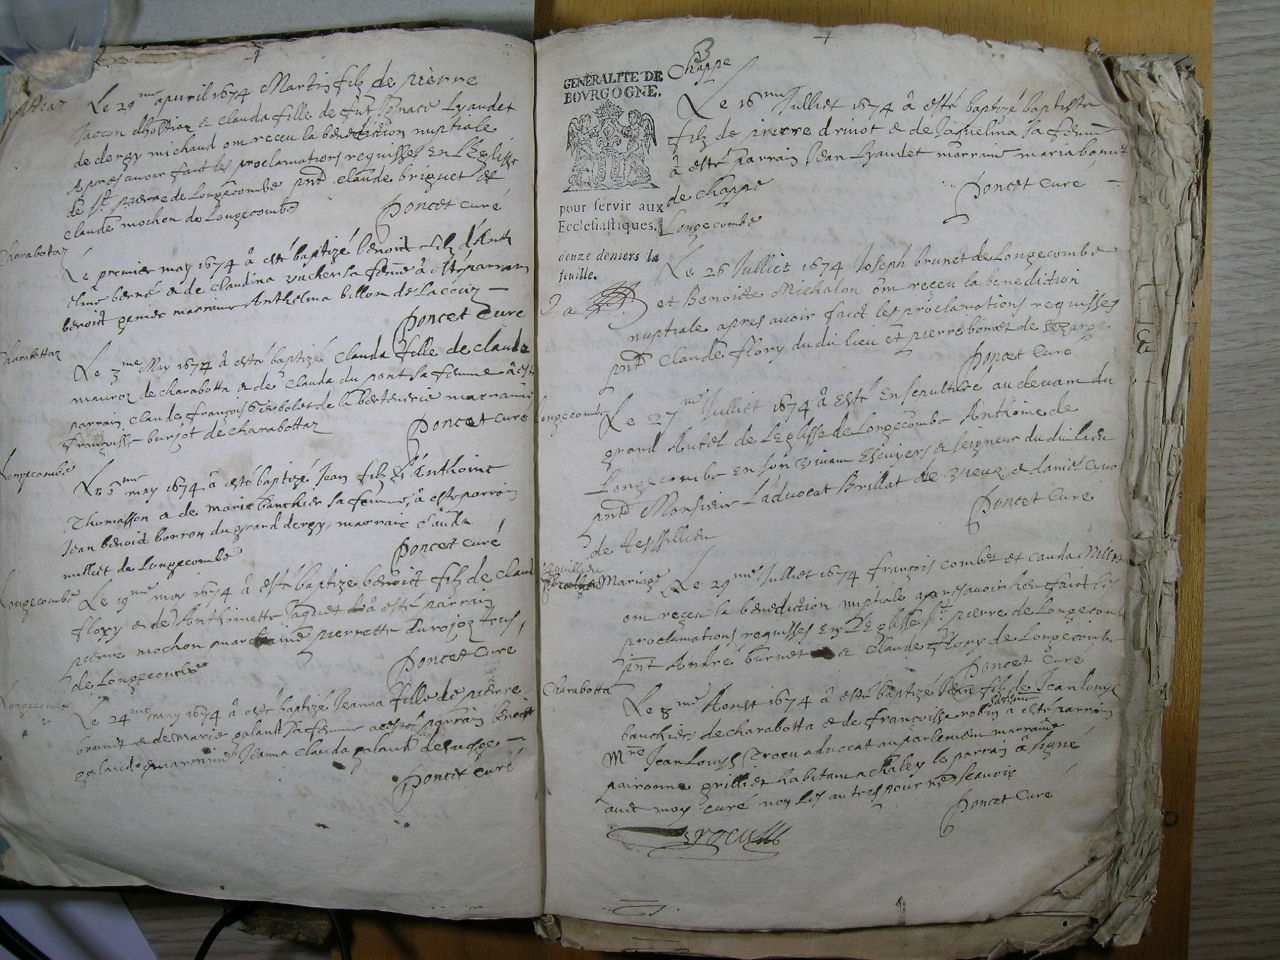 Le 29me apvril 1674 Martin filz de pierre
Jaccon dhostiaz & Clauda fille de fut Ignace Lyaudet
de dergy michaud ont receu la benediction nuptiale
Apres avoir faict les proclamations requisses En L'Eglisse
de St pierre de Longecombe pnt Claude briguet et
Claude mochon de Longecombe
poncet Curé
Charabottaz
Le premier may 1674 à esté baptizé benoict filz d'Anth
elme & de Claudina sa feme à esté parrain
benoict marraine Anthelma billon de Lacouz
poncet Curé
Charabottaz
Le 3me May 1674 à esté baptizé Clauda fille de claude
de charabotta & de Clauda du pont sa femme à esté
parrain claude françois de la marraine
françoisse burjot de charabottaz
poncet Curé
Longecombe
Le 5me may 1674 à esté baptizé Jean filz d'Anthoine
Thomasson & de marie banchier sa femme, à esté parrain
Jean benoict bonron du grand dergy, marraine Clauda
milliet de Longecombe
poncet Curé
Longecombe
Le 19me may 1674 à esté baptizé benoict filz de Claud
floxy & de Anthoinette Jaquet à esté parrain
pierre mochon marraine pierrette tous
de Longecombe
poncet Curé
Longecombe
Le 24me may 1674 à esté baptizé Jeanna fille de pierre
brunet & de Marie galant sa femme a esté parrain Benoist
galand & marraine Jeanna Clauda galand
poncet Curé
3
GENERALITÉ DE
BOVRGOGNE.
pour servir aux
Ecclesiastiques.
douze deniers la
fueille.
Chappe
Le 16me Julliet 1674 à esté baptizé baptiste
filz de pierre drivot & de Jaquelina sa femme
à esté parrain Jean Lyaudet marraine maria
de chappe
poncet Curé
Longecombe
Le 26 Julliet 1674 Joseph brunet de Longecombe
et Benoicte Michalon ont receu la benediction
nuptiale apres avoir faict les proclamations requisses
pnt Claude flory dudit lieu et pierre bonet de
poncet Curé
Longecombe
Le 27me Julliet 1674 à Esté Ensepulture au devant du
grand Autel de L'Eglisse de Longecombe Anthoine de
Longecombe en son vivant Escuiers & seigneur dudit lieu
pnt Monsieur L'advocat Brillat de vieux & daniel
de tessillieu
poncet Curé
Mariage
Le 29me Julliet 1674 françois combet et Cauda Millet
ont receu la benediction nuptiale apres avoir faict les
proclamations requisses En L'Eglisse St pierre de Longecombe
pnt André burnet & Claude flory de Longecombe
poncet Curé
Charabotta
Le 3me Aoust 1674 à esté baptizé Jean filz de Jean Louys
banchier de charabotta & de françoisse robin à esté parrain
Mre Jean Louys Trocu advocat au parlement marraine
pairronne grilliet habitant a chaley le parrain à signé
avec moy curé non les autres pour ne scavoir
poncet Curé
Trocu